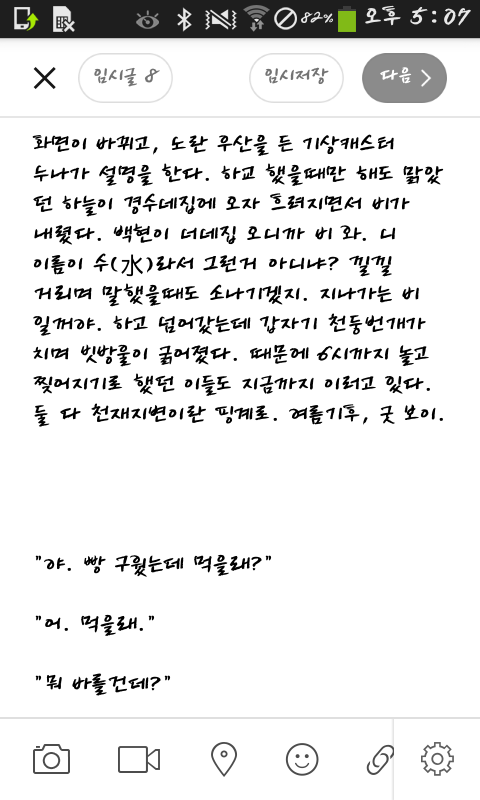 82% 오후 5:07
임시글 8 임시저장 다음
화면이 바뀌고, 노란 우산을 든 기상캐스터
두나가 설명을 한다. 하교 했을때만 해도 맑았
던 하늘이 경수네집에 오자 흐려지면서 비가
내렸다. 백현이 너네집 오니까 비 와. 니
이름이 수(水)라서 그런거 아니냐? 낄낄
거리며 말했을때도 소나기겠지. 지나가는 비
일꺼야. 하고 넘어갔는데 갑자기 천둥번개가
치며 빗방울이 굵어졌다. 때문에 6시까지 놀고
찢어지기로 했던 이들도 지금까지 이러고 있다.
둘 다 천재지변이란 핑계로. 여름기후, 굿 보이.
"야. 빵 구웠는데 먹을래?"
"어. 먹을래."
"뭐 바를건데?"